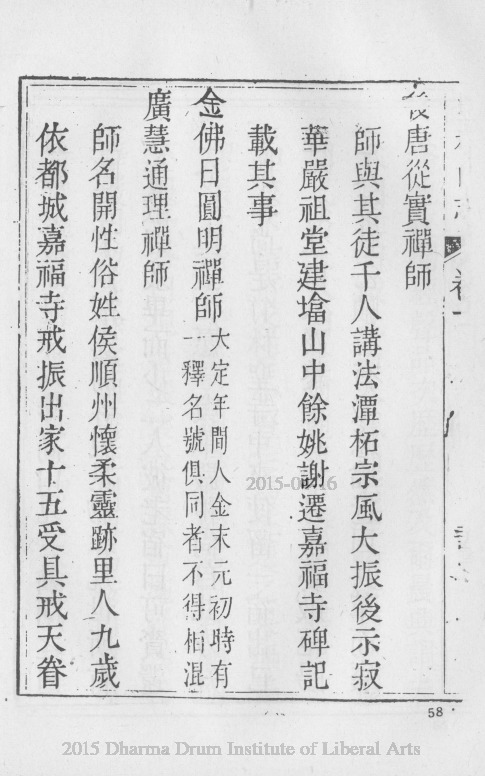 後唐從實禪師
師與其徒千人講法潭柘宗風大振後示寂
華嚴祖堂建墖山中餘姚謝遷嘉福寺碑記
載其事
金佛日圓明禪師 大定年間人金末元初時有
一釋名號俱同者不得相混
廣慧通理禪師
師名開性俗姓侯順州懷柔靈跡里人九歲
依都城嘉福寺戒振出家十五受具戒天眷
58
2015 Dharma Drum Institute of Liberal Arts